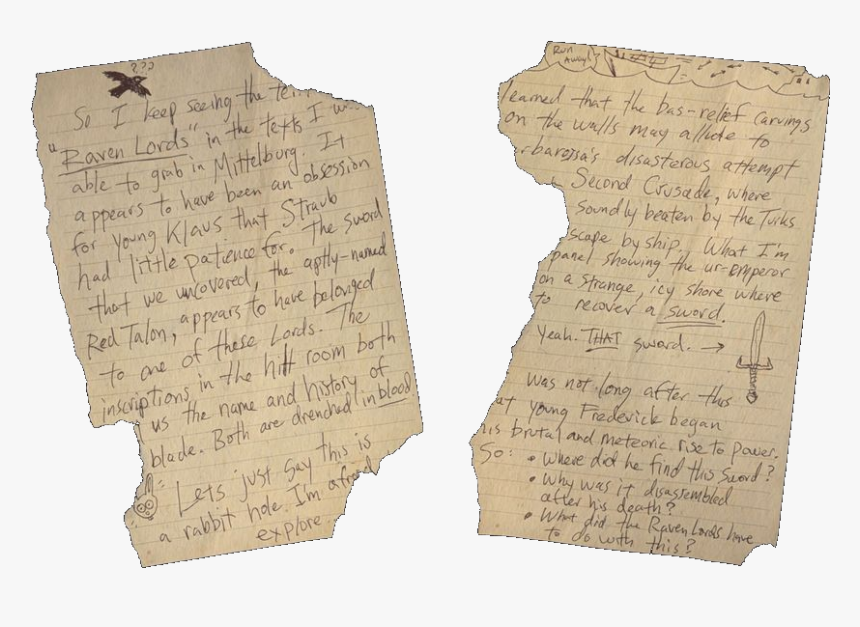 ???
So I keep seeing the te
"Raven Lords" in the texts I w
able to grab in Mittelburg. It
appears to have been an obsession
for young Klaus that Straub
had little patience for. The sword
that we uncovered, the aptly-named
Red Talon, appears to have belonged
to one of these Lords. The
inscriptions in the hilt room both
us the name and history of
blade. Both are drenched in blood
Lets just say this is
a rabbit hole. I'm afraid
explore
Run
Away!
learned that the bas-relief carvings
on the walls may allude to
rbarossa's disasterous attempt
Second Crusade, where
soundly beaten by the Turks
scape by ship. What I'm
panel showing the ur-emperor
on a strange, icy shore where
to recover a sword.
Yeah. THAT sword. →
was not long after this
at young Frederick began
his brutal and meteoric rise to power.
So: • Where did he find this sword?
• Why was it disassembled
after his death?
• What did the Raven Lords have
to do with this?